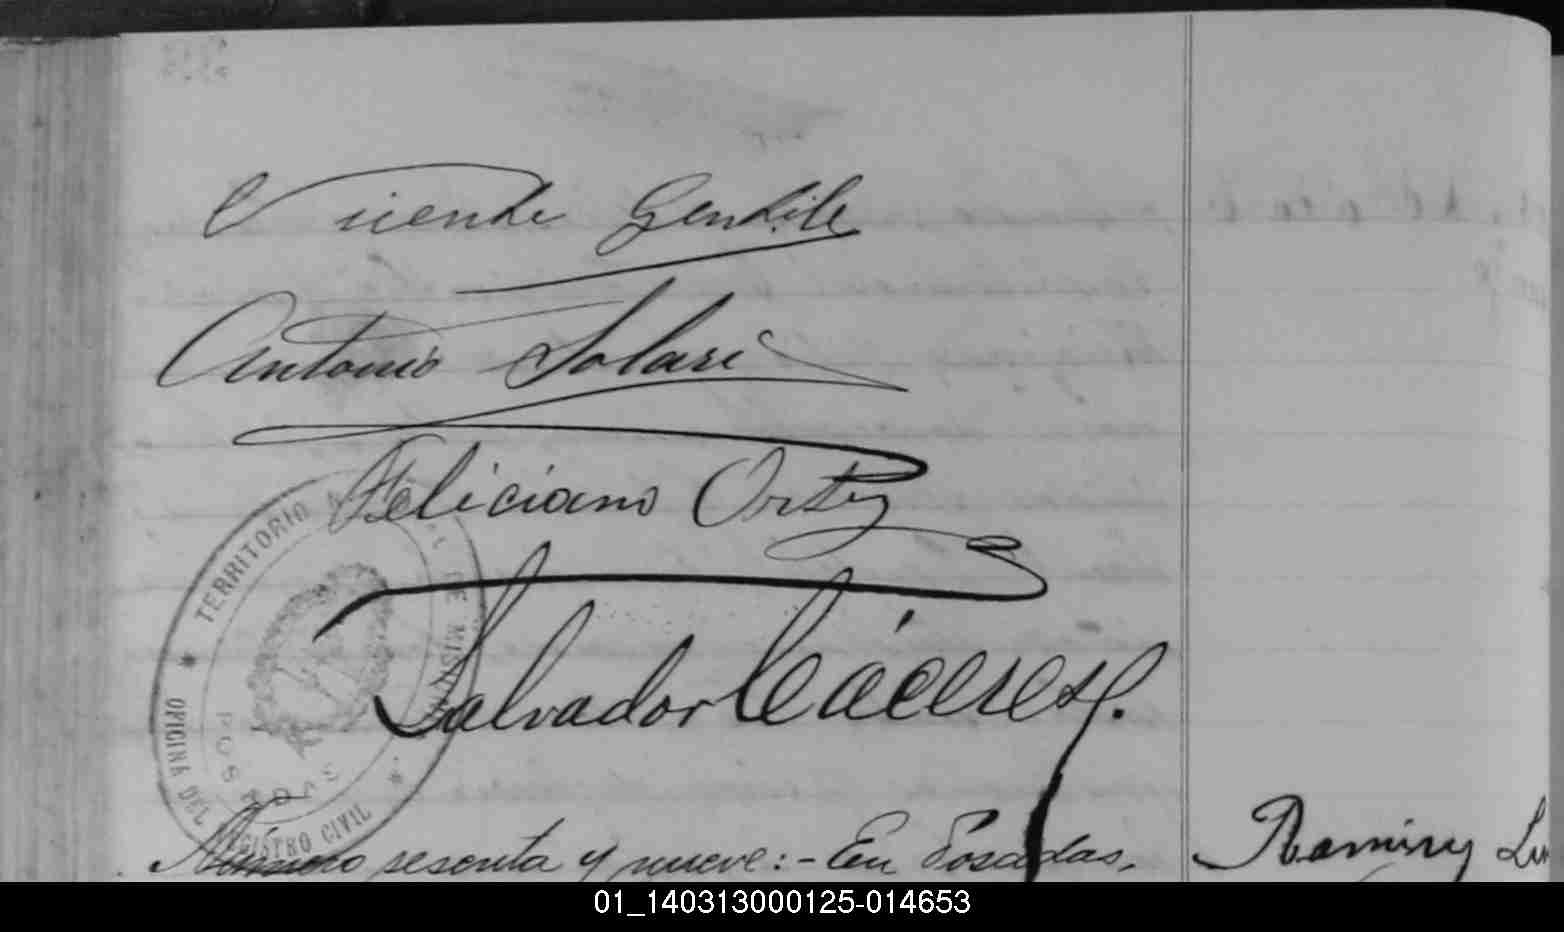 Vicente Gentile
Antonio Solari
Feliciano Ortiz
Salvador Cáceres
TERRITORIO NACIONAL DE MISIONES
OFICINA DEL REGISTRO CIVIL
POSADAS
Número sesenta y nueve:- En Posadas,
Ramirez
01_140313000125-014653